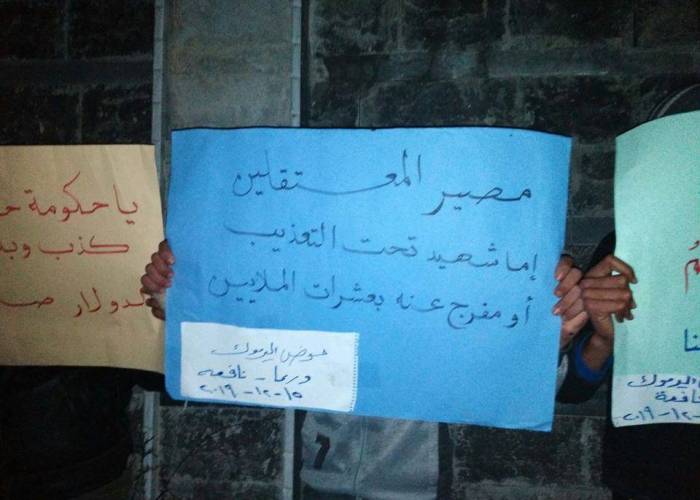 يا حكومة
كذب
دولار
مصير المعتقلين
إما شهيد تحت التعذيب
أو مفرج عنه بعشرات الملايين
حوض اليرموك
درعا - نافعه
١٥-١٢-٢٠١٩
نا
اليرموك
نافعة
١٢-٢٠١٩
7